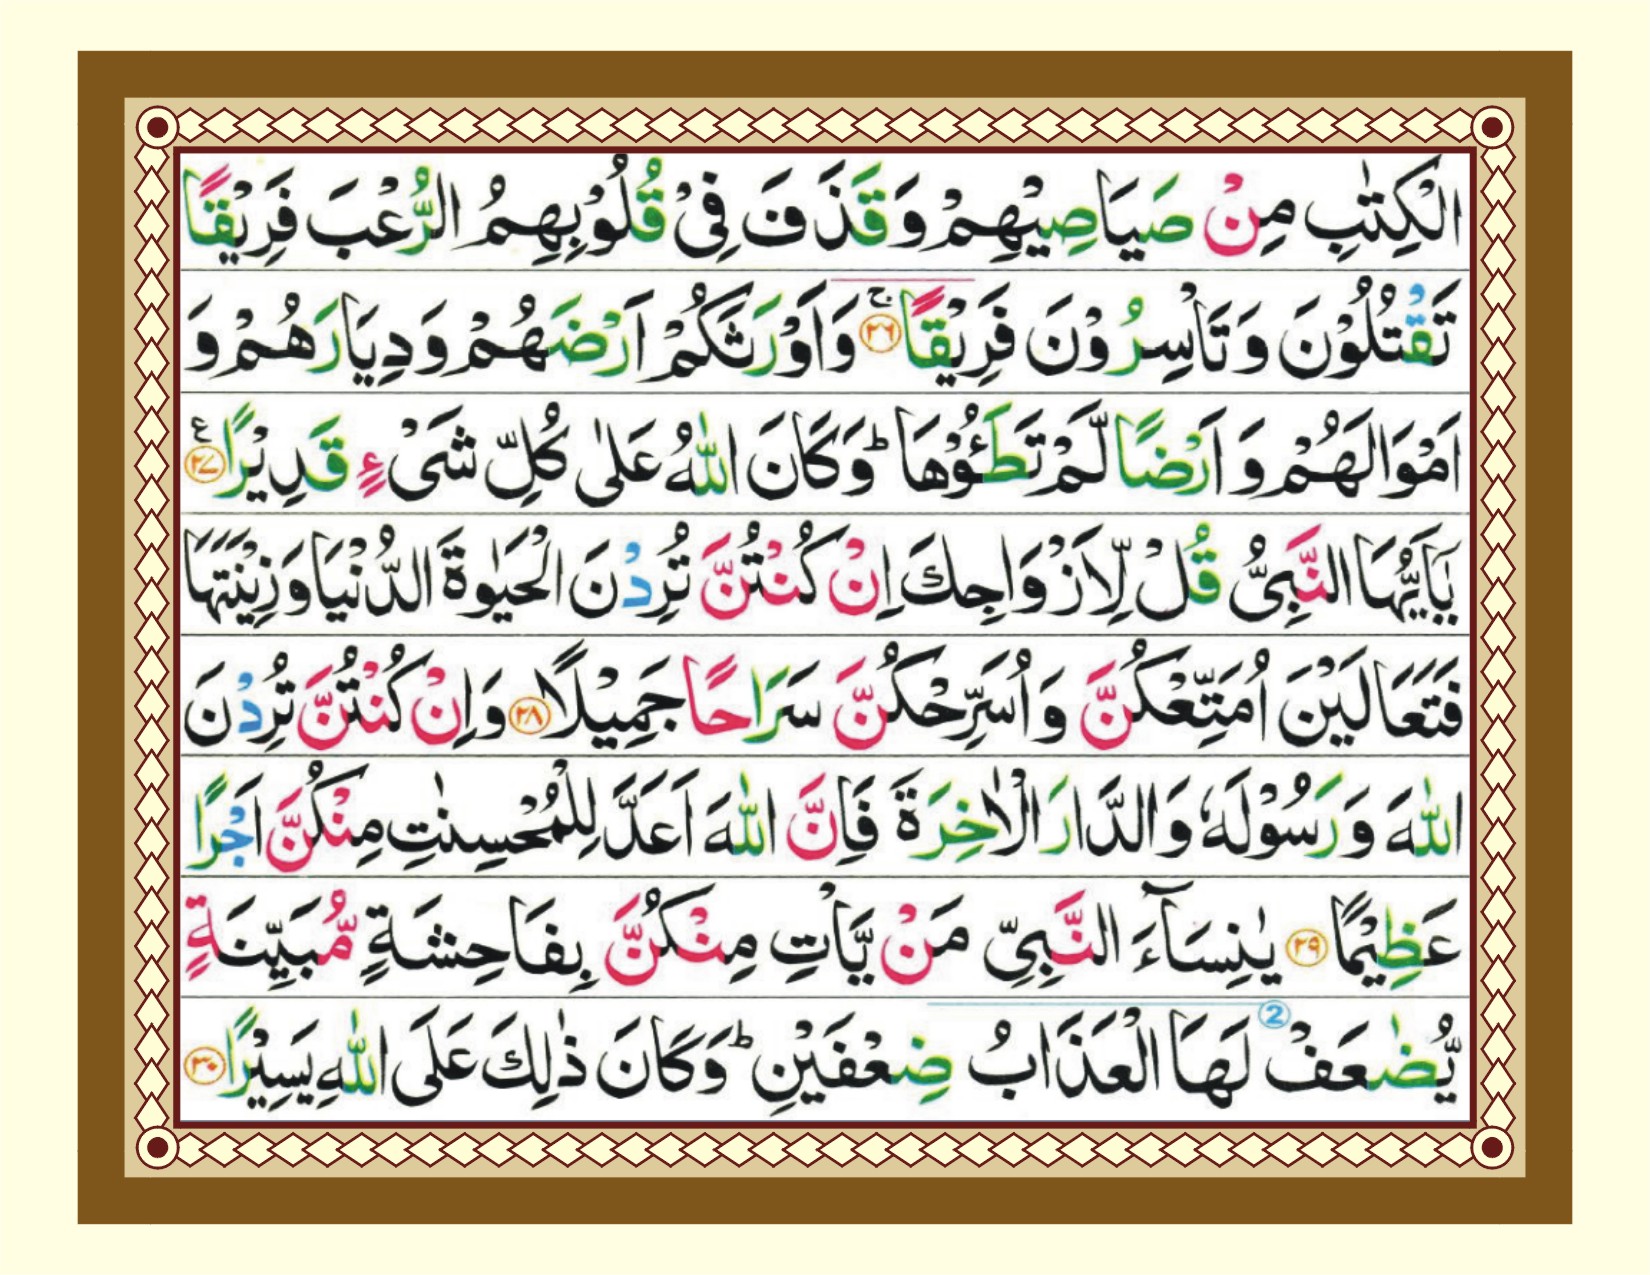 الْكِتٰبِ مِنْ صَيَاصِيْهِمْ وَقَذَفَ فِيْ قُلُوْبِهِمُ الرُّعْبَ فَرِيْقًا
تَقْتُلُوْنَ وَتَاْسِرُوْنَ فَرِيْقًا ۚ ﴿۲۶﴾ وَاَوْرَثَكُمْ اَرْضَهُمْ وَدِيَارَهُمْ وَ
اَمْوَالَهُمْ وَ اَرْضًا لَّمْ تَطَـُٔوْهَا ؕ وَكَانَ اللّٰهُ عَلٰى كُلِّ شَىْءٍ قَدِيْرًا ﴿۲۷﴾ ع
يٰۤاَيُّهَا النَّبِىُّ قُلْ لِّاَزْوَاجِكَ اِنْ كُنْتُنَّ تُرِدْنَ الْحَيٰوةَ الدُّنْيَا وَزِيْنَتَهَا
فَتَعَالَيْنَ اُمَتِّعْكُنَّ وَاُسَرِّحْكُنَّ سَرَاحًا جَمِيْلًا ﴿۲۸﴾ وَاِنْ كُنْتُنَّ تُرِدْنَ
اللّٰهَ وَرَسُوْلَهٗ وَالدَّارَ الْاٰخِرَةَ فَاِنَّ اللّٰهَ اَعَدَّ لِلْمُحْسِنٰتِ مِنْكُنَّ اَجْرًا
عَظِيْمًا ﴿۲۹﴾ يٰنِسَآءَ النَّبِىِّ مَنْ يَّاْتِ مِنْكُنَّ بِفَاحِشَةٍ مُّبَيِّنَةٍ
يُّضٰعَفْ 2 لَهَا الْعَذَابُ ضِعْفَيْنِ ؕ وَكَانَ ذٰلِكَ عَلَى اللّٰهِ يَسِيْرًا ﴿۳۰﴾